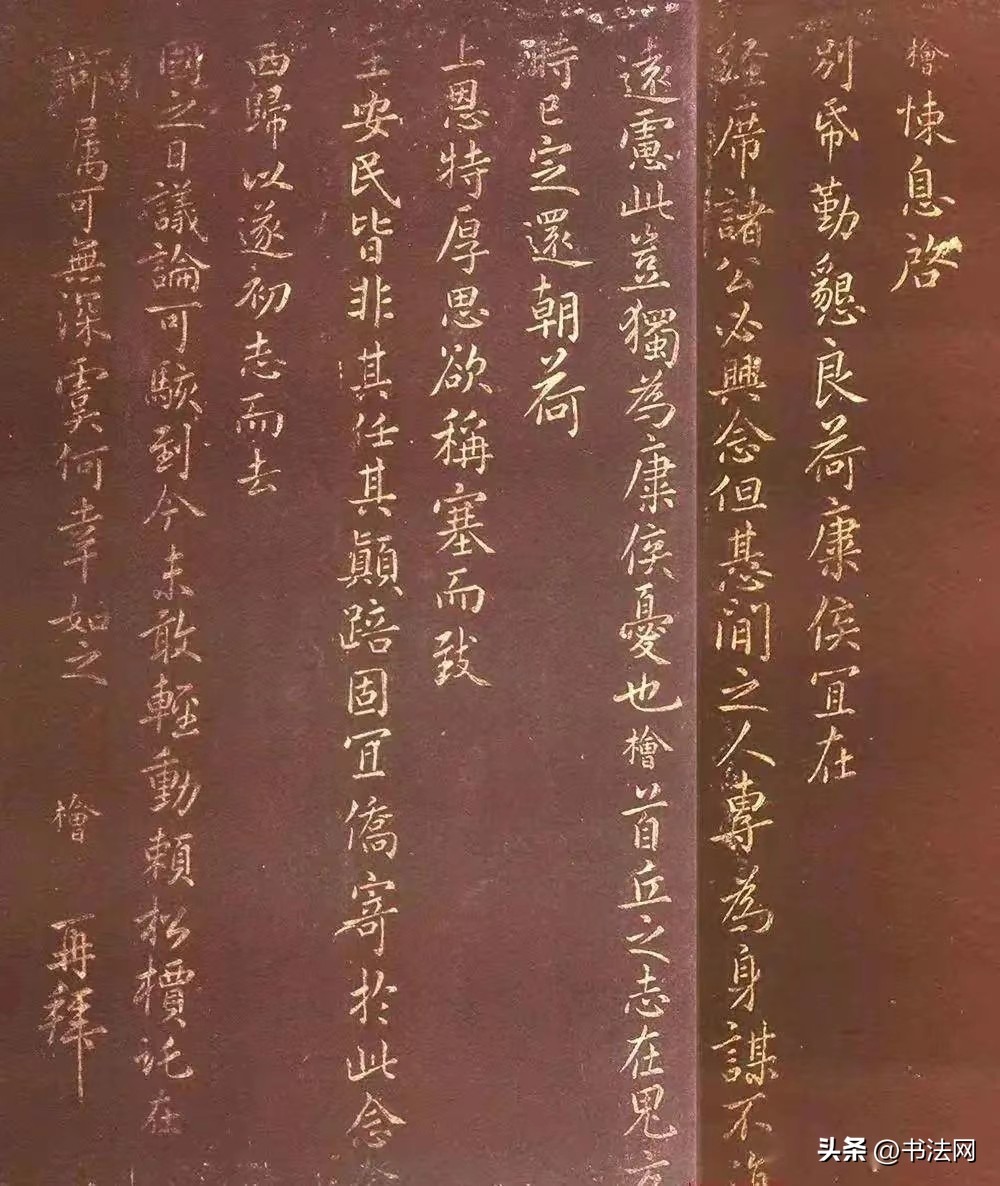 檜悚息啓
別帋勤懇良荷康侯冝在
經席諸公必興念但惎間之人專為身謀不
遠慮此豈獨為康侯憂也檜首丘之志在
時已定還朝荷
上恩特厚思欲稱塞而致
主安民皆非其任其顛踣固冝僑寄於此念
西歸以遂初志而去
國之日議論可駭到今未敢輕動賴松檟託在
部属可無深虞何幸如之 檜 再拜
头条 @书法网